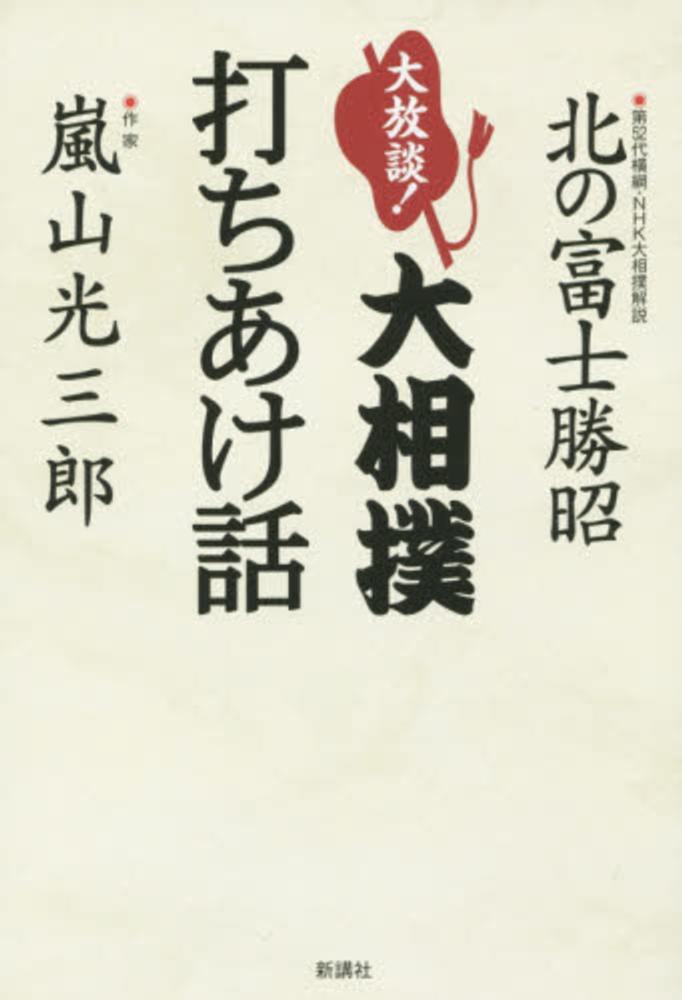 第52代横綱・NHK大相撲解説
北の富士勝昭
大放談!
大相撲
打ちあけ話
作家
嵐山光三郎
新講社